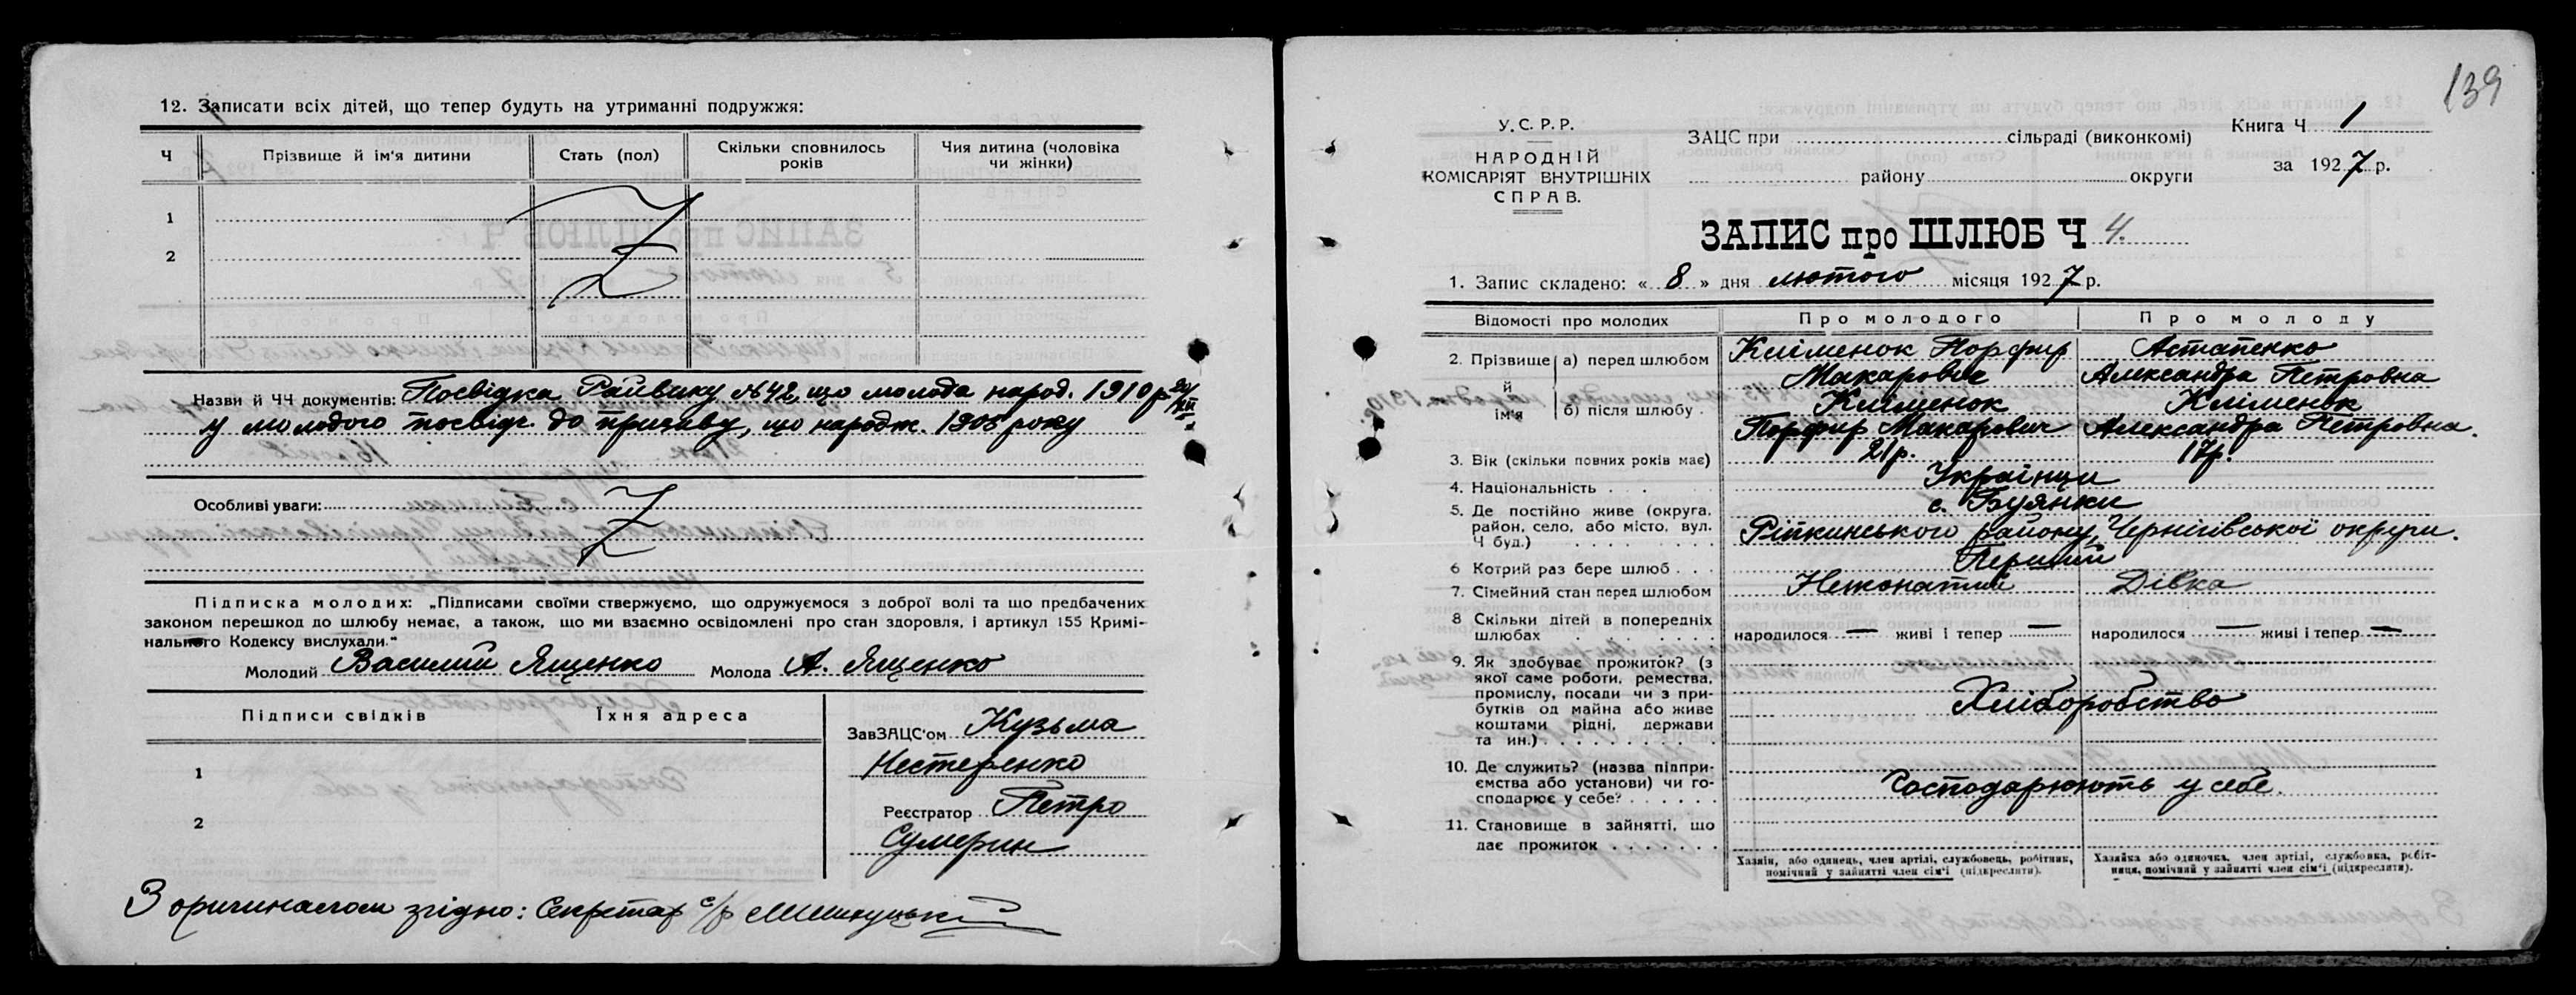 12. Записати всіх дітей, що тепер будуть на утриманні подружжя:
Ч
Прізвище й ім'я дитини
Стать (пол)
Скільки сповнилось
років
Чия дитина (чоловіка
чи жінки)
1
2
Назви й ЧЧ документів: Посвідка Райвику №42, що молода народ. 1910 р. 20/XII
у молодого посвідч. до призиву, що народж. 1905 року
Особливі уваги:
Підписка молодих: „Підписами своїми стверджуємо, що одружуємося з доброї волі та що предбачених
законом перешкод до шлюбу немає, а також, що ми взаємно освідомлені про стан здоровля, і артикул 155 Кримі-
нального Кодексу вислухали.“
Молодий Василий Ященко Молода А. Ященко
Підписи свідків
Їхня адреса
1
2
ЗавЗАЦС'ом Кузьма
Нестеренко
Реєстратор Петро
Сумерин
З оригиналом згідно: Секретар с/р
139
У.С.Р.Р.
НАРОДНІЙ
КОМІСАРІЯТ ВНУТРІШНІХ
СПРАВ.
ЗАЦС при сільраді (виконкомі)
району округи
Книга Ч 1
за 1927 р.
ЗАПИС про ШЛЮБ Ч 4.
1. Запис складено: « 8 » дня лютого місяця 1927 р.
Відомості про молодих
Про молодого
Про молоду
2. Прізвище й ім'я
а) перед шлюбом
Кліменок Порфир
Макарович
Астапенко
Александра Петровна
б) після шлюбу
Кліменок
Порфир Макарович
Кліменок
Александра Петровна.
3. Вік (скільки повних років має)
21 р.
17 р.
4. Національність
Українци
5. Де постійно живе (округа,
район, село, або місто, вул.
Ч буд.)
с. Буянки
Ріпкинського району, Чернігівської округи.
6 Котрий раз бере шлюб
Перший
7. Сімейний стан перед шлюбом
Нежонатий
Дівка
8 Скільки дітей в попередніх
шлюбах
народилося — живі і тепер —
народилося — живі і тепер —
9. Як здобуває прожиток? (з
якої саме роботи, ремества,
промислу, посади чи з при-
бутків од майна або живе
коштами рідні, держави
та ин.)
Хліборобство
10. Де служить? (назва підпри-
ємства або установи) чи го-
сподарює у себе?
Господарюють у себе.
11. Становище в зайнятті, що
дає прожиток
Хазяїн, або одинець, член артілі, службовець, робітник,
помічний у зайнятті член сім'ї (підкреслити).
Хазяйка або одиночка, член артілі, службовка, робіт-
ниця, помічний у зайнятті член сім'ї (підкреслити).